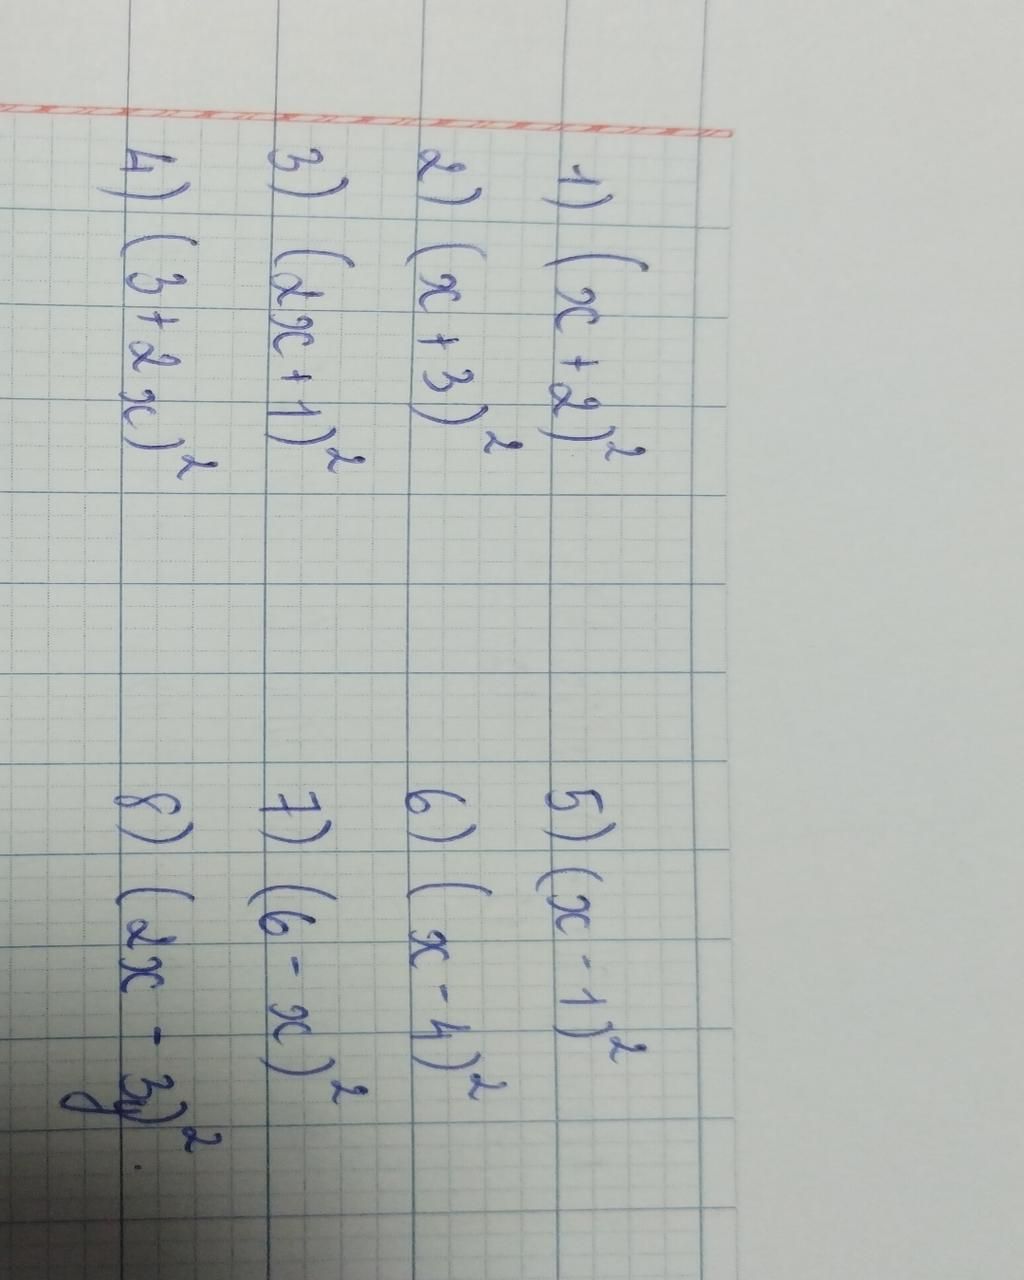 1) (x + 2)²
2) (x + 3)²
3) (2x + 1)²
4) (3 + 2x)²
5) (x - 1)²
6) (x - 4)²
7) (6 - x)²
8) (2x - 3y)².